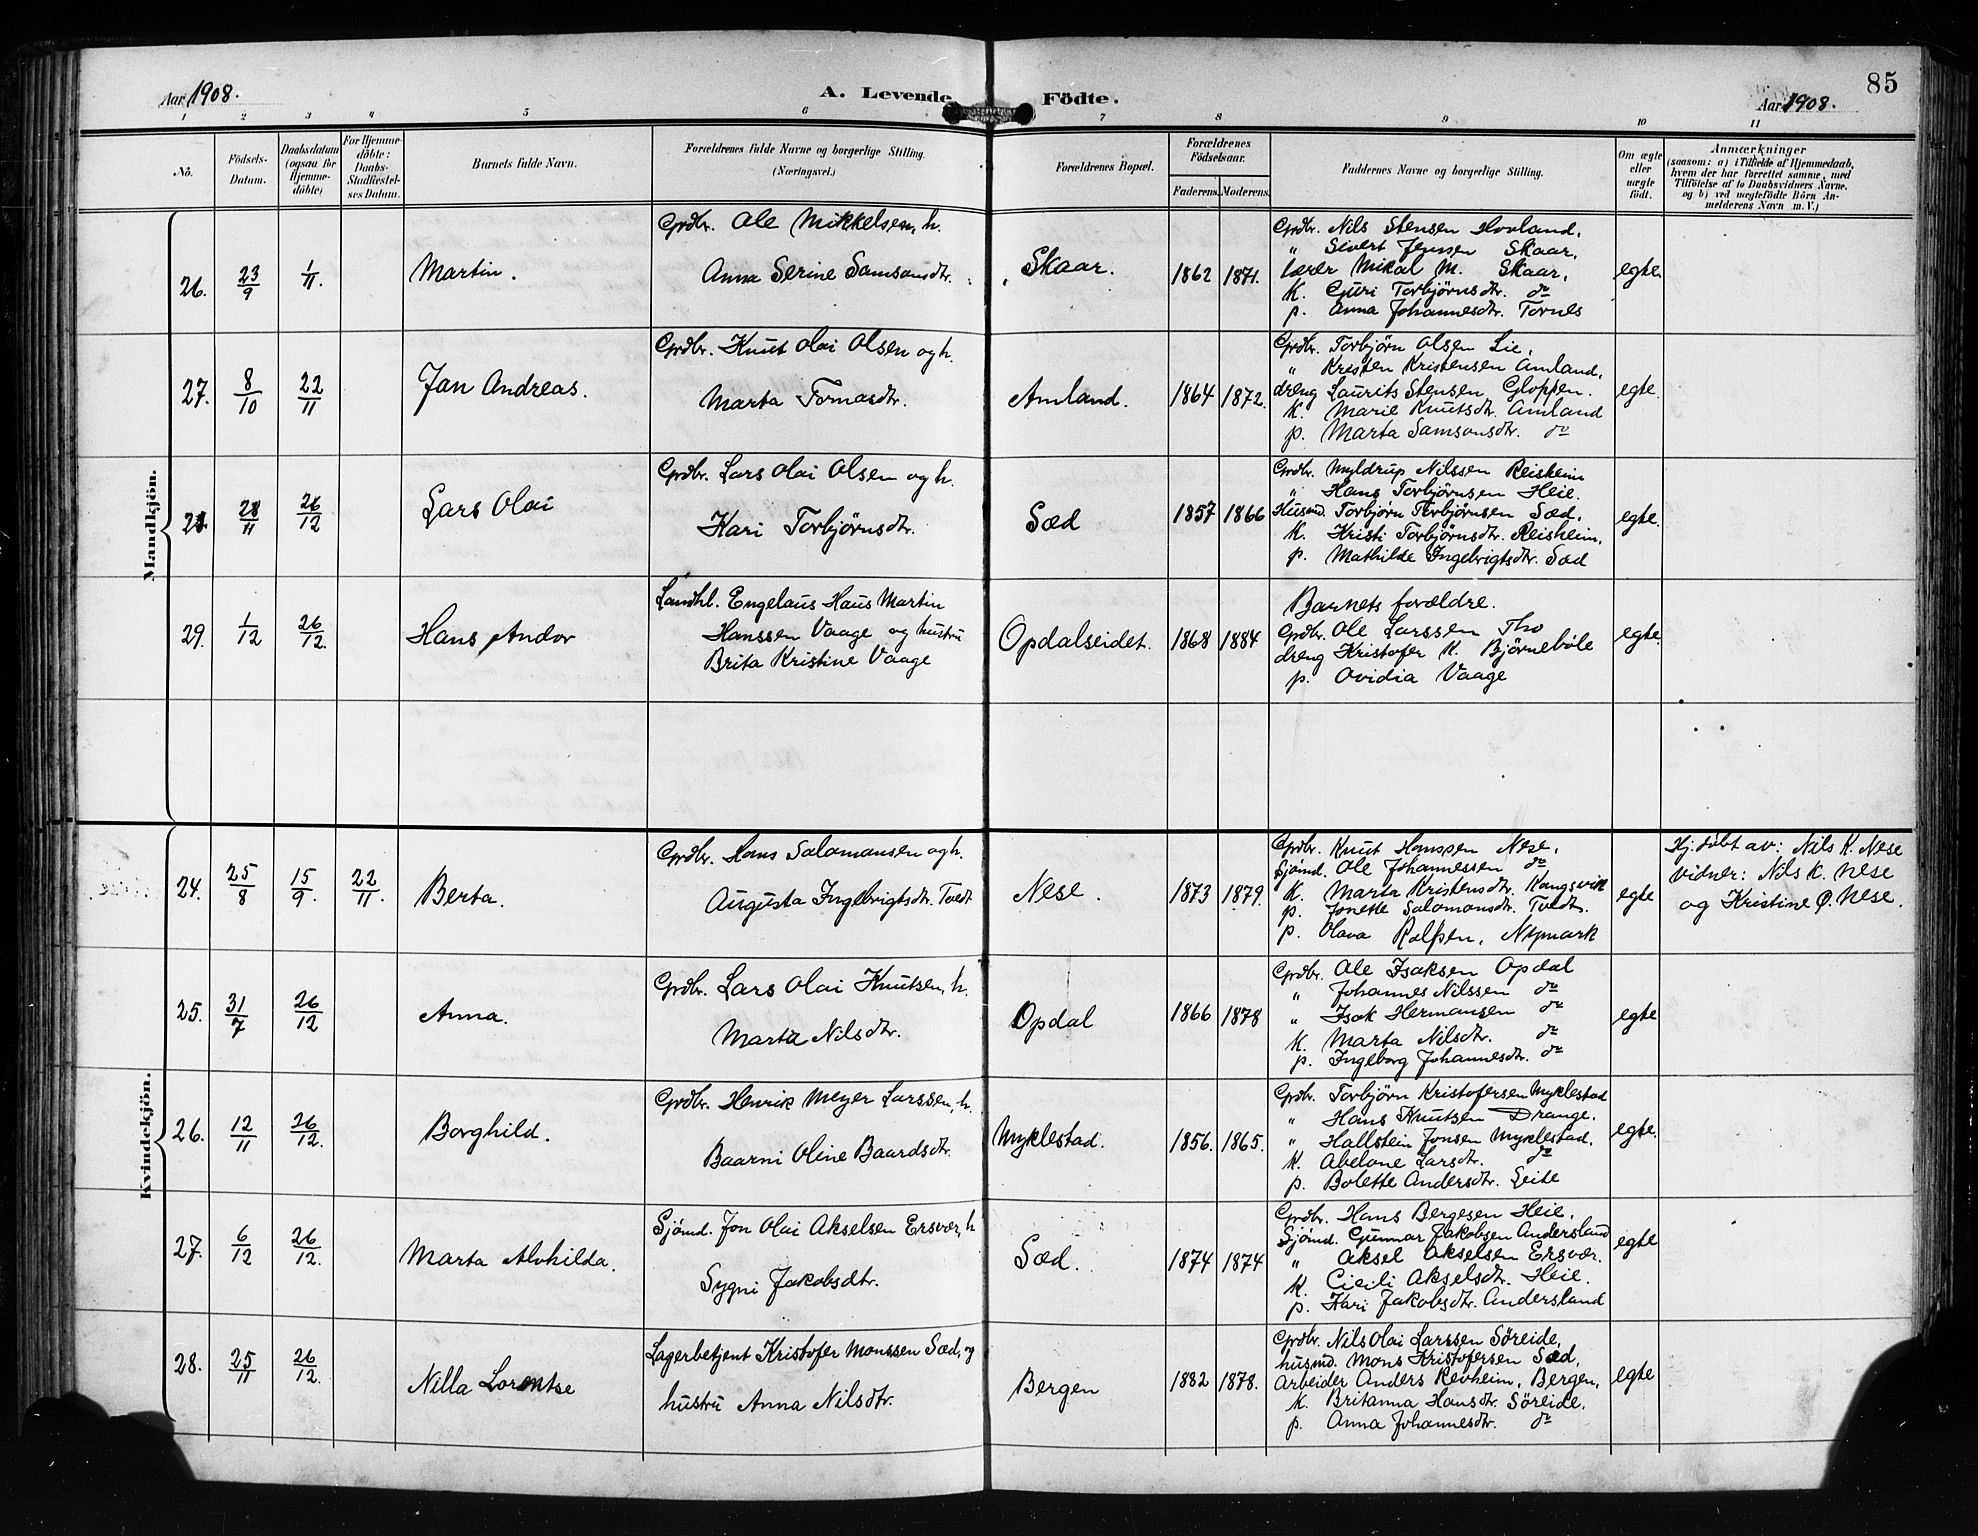 85
Aar 1908.
A. Levende Födte.
Aar 1908.
1 2 3 4 5 6 7 8 9 10 11
No.
Födsels-
Datum.
Daabsdatum
(ogsaa for
Hjemme-
döbte)
For Hjemme-
döbte:
Daabs-
Stadfæstel-
ses Datum.
Barnets fulde Navn.
Forældrenes fulde Navne og borgerlige Stilling.
(Næringsvei.)
Forældrenes Bopæl.
Forældrenes
Födselsaar.
Faderens. Moderens.
Faddernes Navne og borgerlige Stilling.
Om ægte
eller
uægte
født.
Anmærkninger
(saasom: a) i Tilfælde af Hjemmedaab,
hvem der har forrettet samme, med
Tilföielse af to Daabsvidners Navne,
og b) ved uægtefödte Börn An-
melderens Navn m. V.)
Mandkjön.
26. 23/9 1/11. Martin.
Grdbr. Ole Mikkelsen, h.
Anna Serine Samsonsdtr.
Skaar. 1862 1871.
Grdbr. Nils Stensen Hovland,
" Sivert Jensen Skaar,
Lærer Mikal M. Skaar,
K. Guri Torbjörnsdtr. do
p. Anna Johannesdtr. Tornes
egte.
27. 8/10 22/11 Jan Andreas.
Grdbr. Knut Olai Olsen og h.
Marta Tomasdtr.
Amland. 1864 1872.
Grdbr. Torbjörn Olsen Lie,
" Kristen Kristensen Amland,
dreng Laurits Stensen Gloppen.
K. Marie Knutsdtr. Amland
p. Marta Samsonsdtr. do
egte.
28. 28/11 26/12 Lars Olai
Grdbr. Lars Olai Olsen og h.
Kari Torbjörnsdtr.
Sæd 1857 1866
Grdbr. Myldrup Nilssen Reisheim
" Hans Torbjörnsen Heie.
Husmd. Torbjörn Torbjörnsen Sæd,
K. Kristi Torbjörnsdtr. Reisheim,
p. Mathilde Ingebrigtsdtr. Sæd
egte.
29. 1/12 26/12. Hans Andor
Landhl. Engelaus Haus Martin
Hanssen Vaage og hustru
Brita Kristine Vaage
Opdalseidet. 1868 1884
Barnets forældre.
Grdbr. Ole Larssen Tho
dreng Kristofer K. Björnebøle
p. Ovidia Vaage
egte.
Kvindekjön.
24. 25/8 15/9. 22/11. Berta.
Grdbr. Hans Salamonsen og h.
Augusta Ingebrigtsdtr. Tvedt
Nese. 1873 1879.
Grdbr. Knut Hanssen Nese,
Sjömd. Ole Johannessen do
K. Marta Kristensdtr. Kangsvik
p. Jonette Salomonsdtr. Tvedt.
p. Olava Rolfsen, Nymark
egte
Hj. døbt av: Nils K. Nese
Vidner: Nils K. Nese
og Kristine Ø. Nese.
25. 31/7 26/12 Anna.
Grdbr. Lars Olai Knutsen, h.
Marta Nilsdtr.
Opdal 1866 1878
Grdbr. Ole Isaksen Opdal
" Johannes Nilssen do
" Isak Hermansen do
K. Marta Nilsdtr. do
p. Ingeborg Johannesdtr. do
egte
26. 12/11 26/12. Borghild.
Grdbr. Henrik Meyer Larssen, h.
Baarni Oline Baardsdtr.
Myklestad. 1856. 1865.
Grdbr. Torbjörn Kristofersen Myklestad
" Hans Knutsen Drange.
" Hallstein Jonsen Myklestad,
K. Abelone Larsdtr. do
p. Bolette Andersdtr. Leite
egte.
27. 6/12 26/12. Marta Alvhilda.
Sjömd. Jon Olai Akselsen Ersvær, h
Sygni Jakobsdtr.
Sæd. 1874 1874
Grdbr. Hans Bergesen Heie.
Sjömd. Gunnar Jakobsen Andersland
" Aksel Akselsen Ersvær.
K. Cicili Akselsdtr. Heie.
p. Kari Jakobsdtr. Andersland
egte
28. 25/11 26/12. Nilla Lorentse
Lagerbetjent Kristofer Monssen Sæd, og
hustru Anna Nilsdtr.
Bergen 1882 1878.
Grdbr. Nils Olai Larssen Söreide,
husmd. Mons Kristofersen Sæd,
Arbeider Anders Revheim, Bergen,
K. Britanna Hansdtr. Söreide,
p. Anna Johannesdtr. do
egte